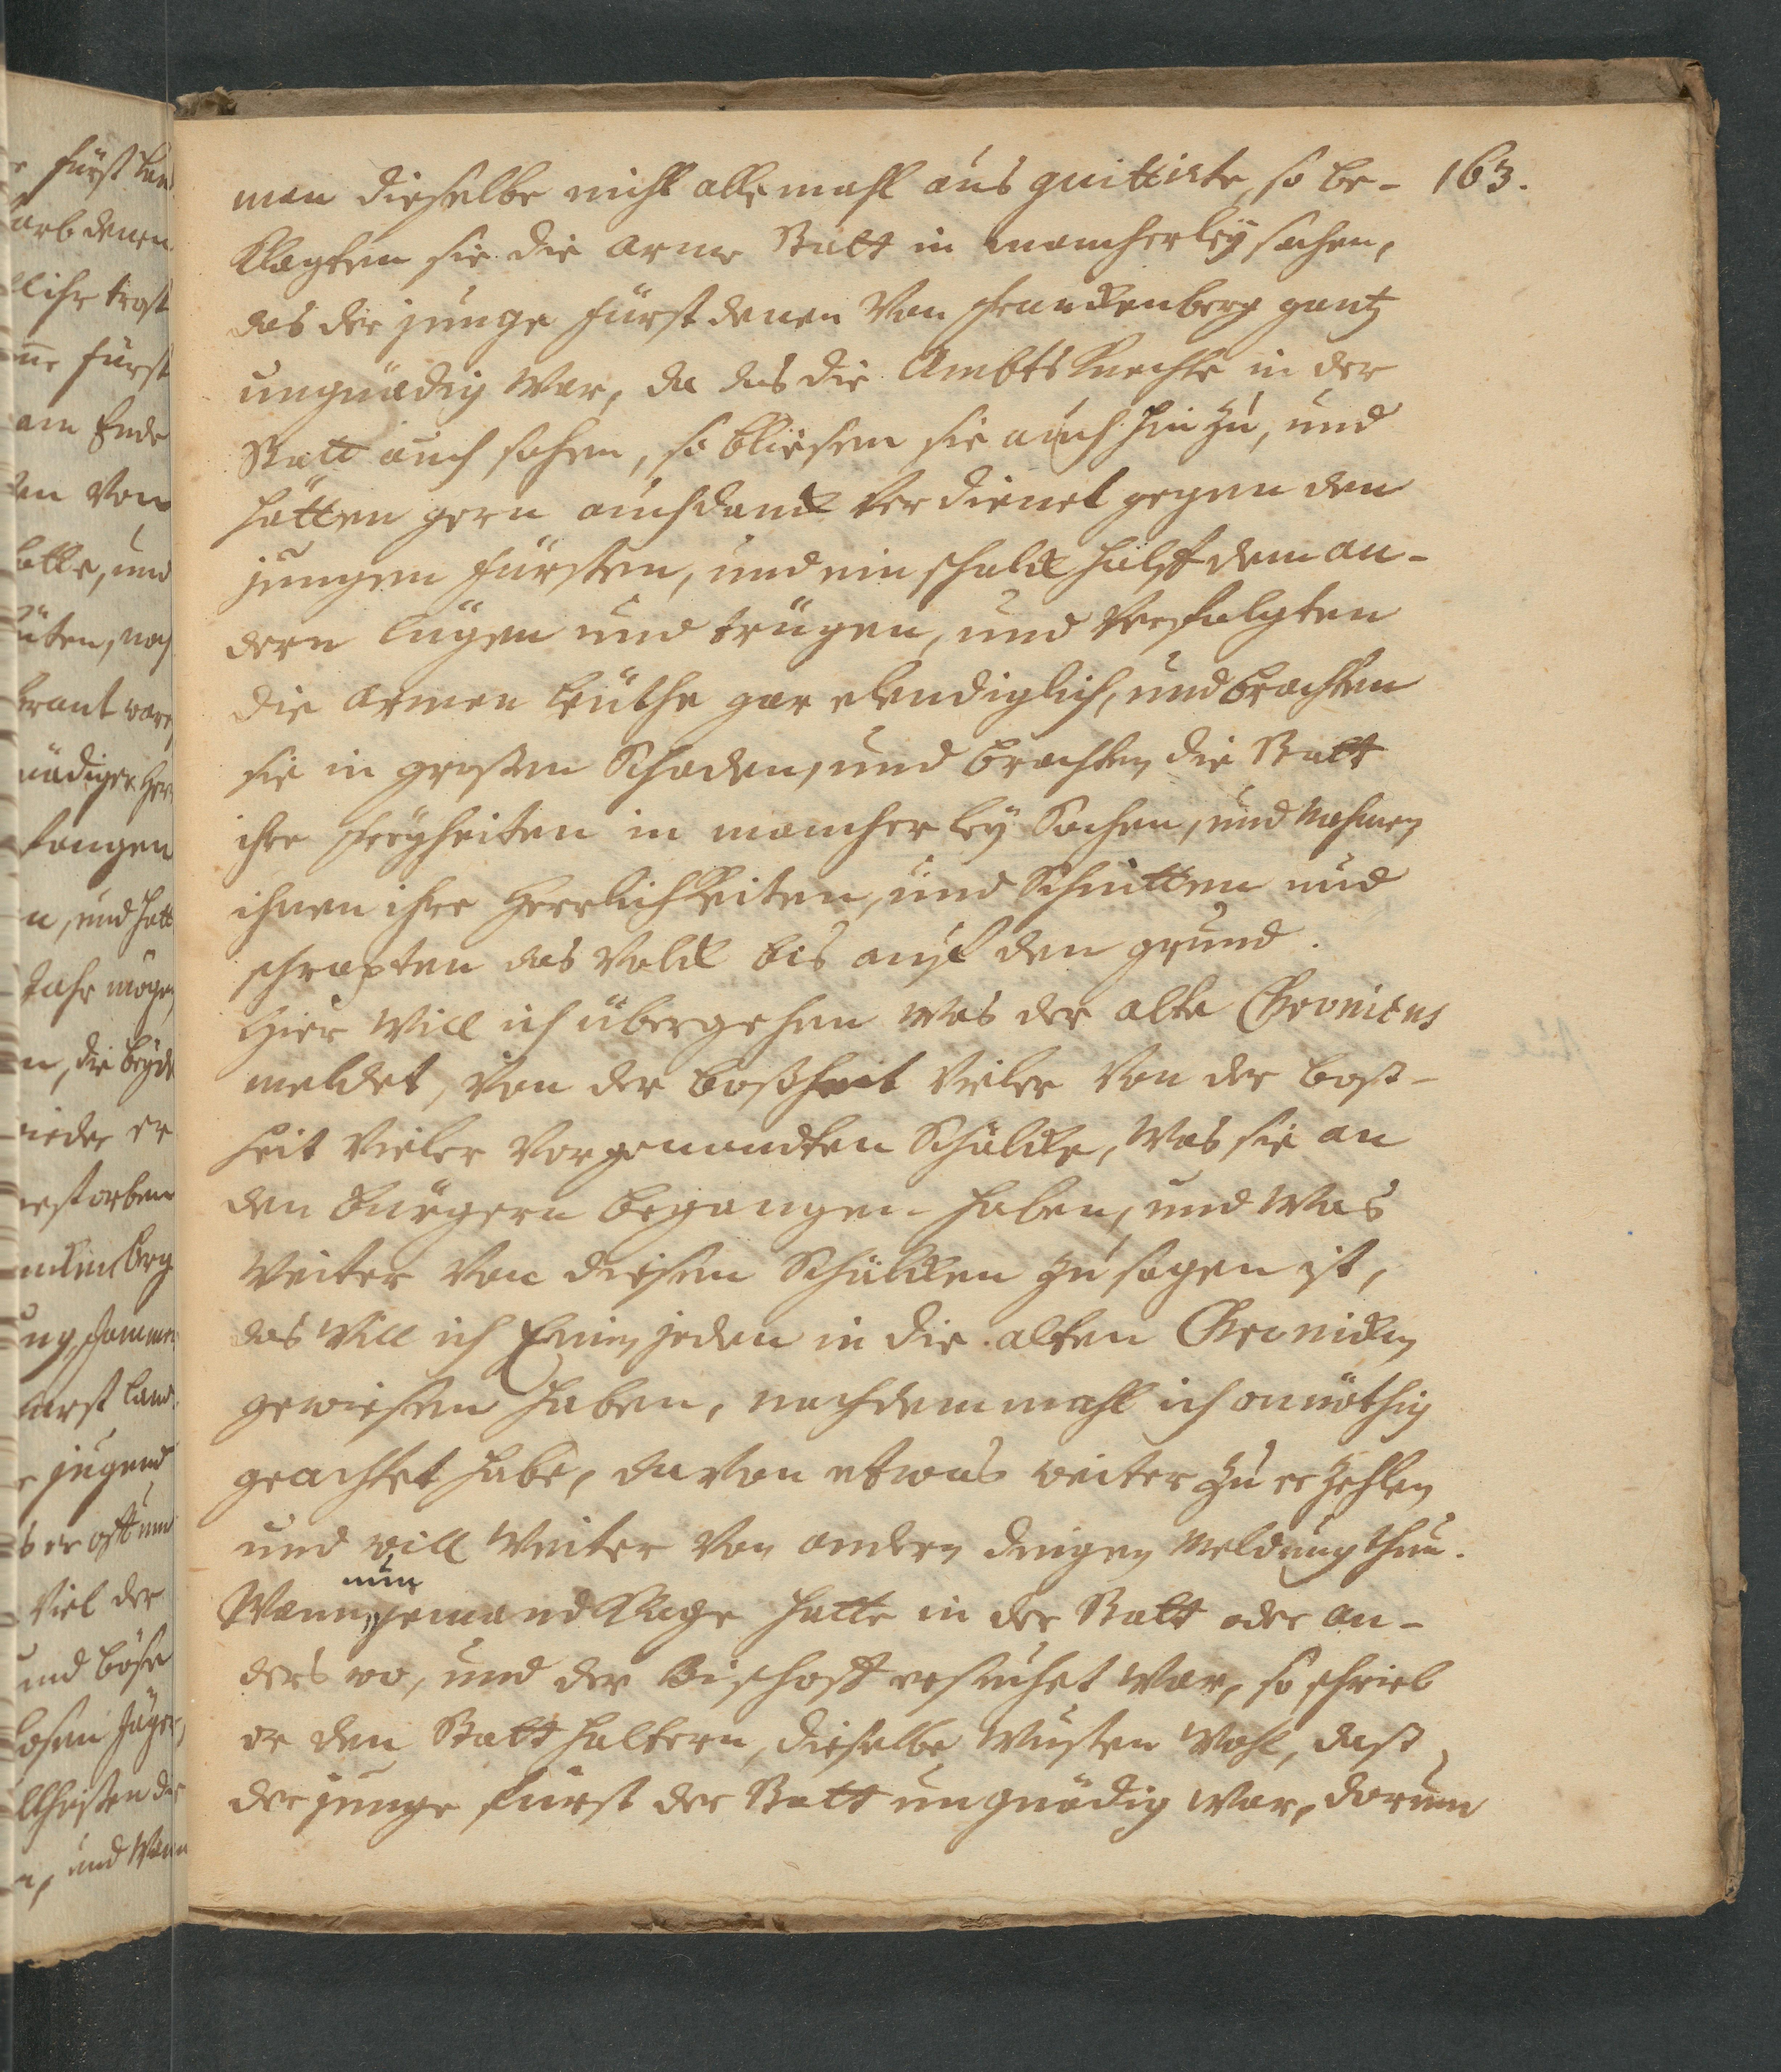 163.
man dieselbe nicht allemahl aus quittirte, so be-
klagten sie die arme Statt in mancherley sachen,
das der junge Fürst denen von Franckenberg gantz
ungnädig war, da das die Ambts Knechte in der
Statt auch sahen, so bliesen sie auch hin zu, und
hätten gern auch danck verdienet gegen den
jungen Fürsten, und ein schalck halff dem an-
dern lügen und trügen, und verfolgten
die armen Leuthe gar elendiglich, und brachten
sie in grosen Schaden, und brachten die Statt
ihre Freyheiten in mancherley Sachen, und nahmen
ihnen ihre Herrlichkeiten, und Schnitten und
schrapten das Volck bis auff den grund.
Hier will ich übergehen was der alte Chronicus
meldet, von der boßheit vieler von der boß-
heit vieler vorgenandten Schälcke, was sie an
den Bürgern begangen haben, und was
weiter von diesen Schälcken zu sagen ist,
das will ich Einen jeden in die alten Chronicken
gewiesen haben, nachdemmahl ich onnöthig
geachtet habe, davon etwas weiter zu erzehlen
und will weiter von andern dingen Meldung thun.
Wann nun jemand Klage hatte in der Statt oder an-
ders wo, und der Bischoff ersuchet war, so schrieb
er den Statthaltern, dieselbe wusten wohl, dass
der junge Fürst der Statt ungnädig war, darum